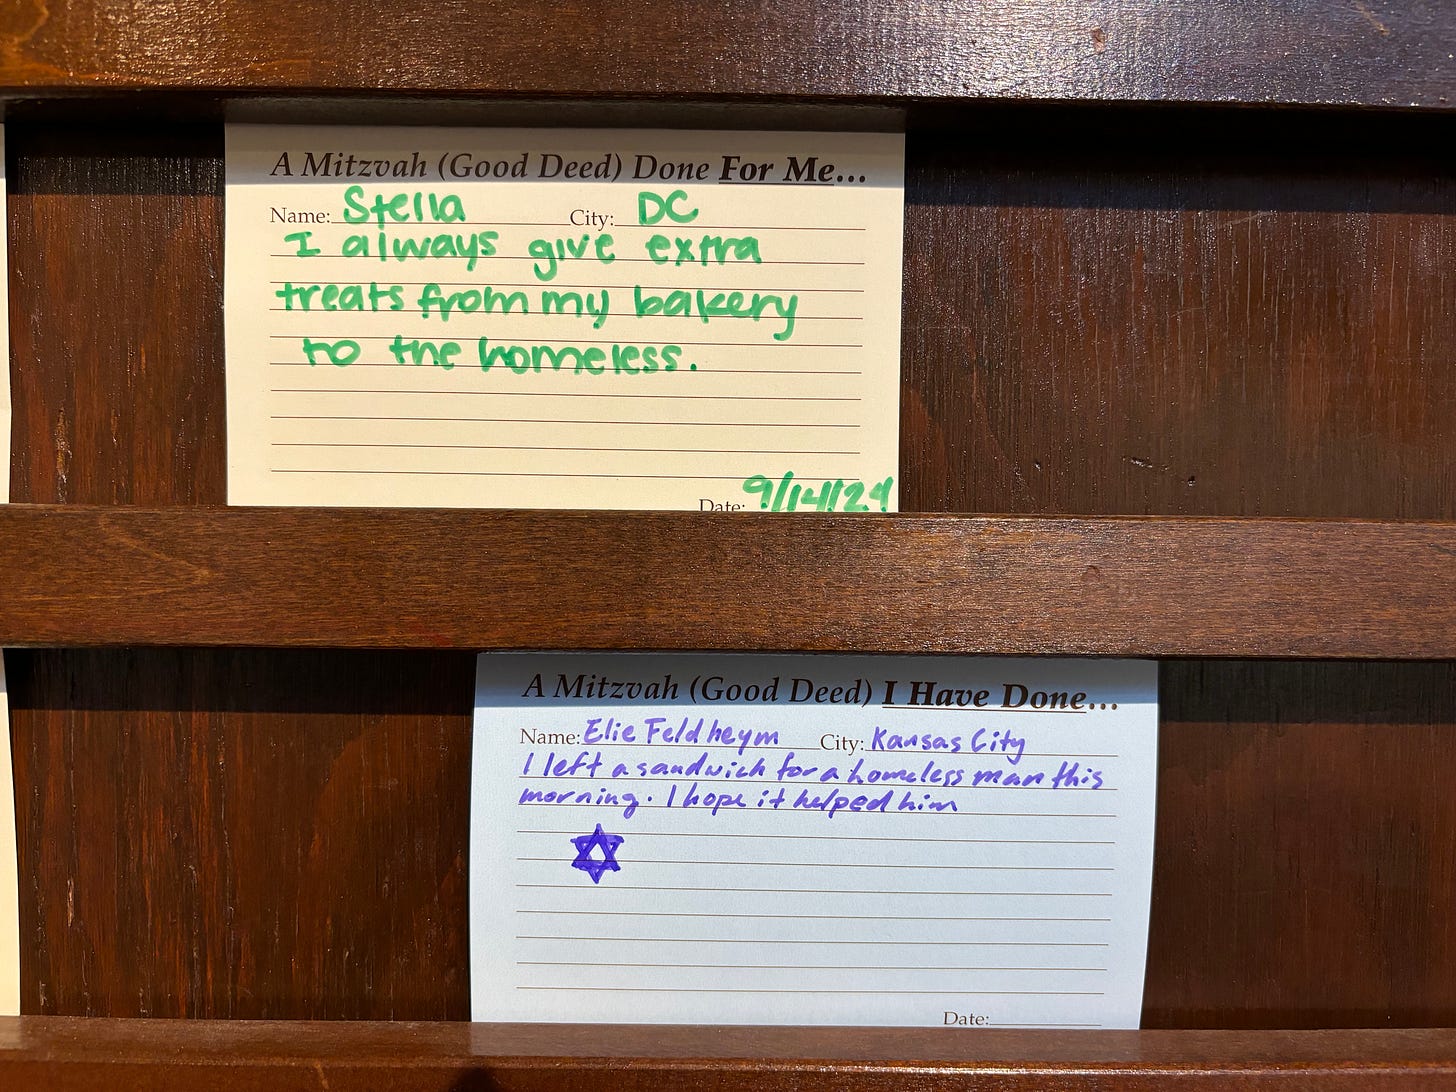 A Mitzvah (Good Deed) Done For Me...
Name: Stella City: DC
I always give extra
treats from my bakery
to the homeless.
Date: 9/14/24
A Mitzvah (Good Deed) I Have Done...
Name: Elie Feldheym City: Kansas City
I left a sandwich for a homeless man this
morning. I hope it helped him
Date: